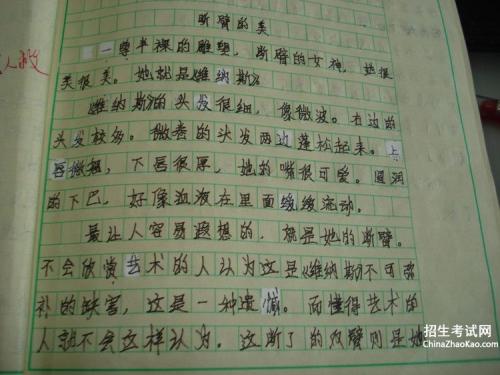 断臂的美
人教
一尊半裸的雕塑，断臂的女神，她很
美很美。她就是《维纳斯》
《维纳斯》的头发很细，像微波。右边的
头发较多。微卷的头发两边蓬松起来。上
唇微翘，下唇很厚，她的嘴很可爱。圆润
的下巴，好像血液在里面缓缓流动。
最让人容易遐想的，就是她的断臂。
不会欣赏艺术的人认为这是《维纳斯》不可弥
补的缺害，这是一种遗憾。而懂得艺术的
人就不会这样认为。这断了的双臂则是她
招生考试网
ChinaZhaoKao.com